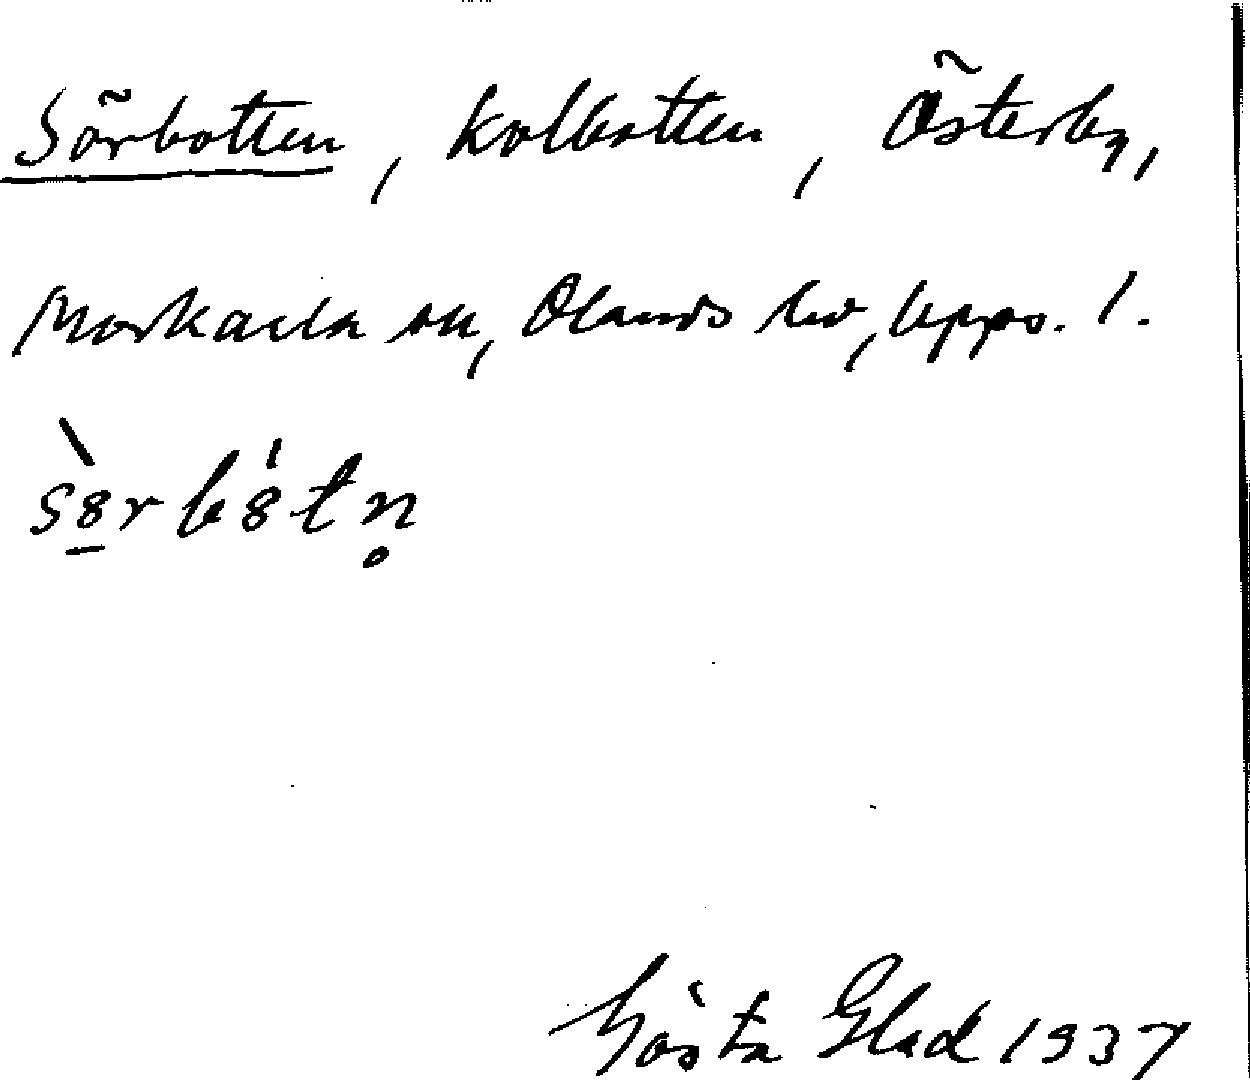 Sörbotten, kolbotten, Österby,
Morkarla sn, Olands hd, Upps. l.
Gösta Glad 1937